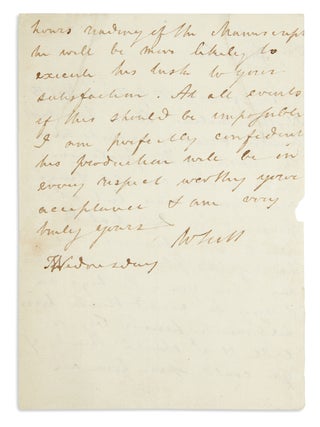 hours reading of the Manuscript
he will be more likely to
execute his task to your
satisfaction. At all events
if this should be impossible
I am perfectly confident
his production will be in
every respect worthy your
acceptance & am very
truly yours
WScott
Wednesday